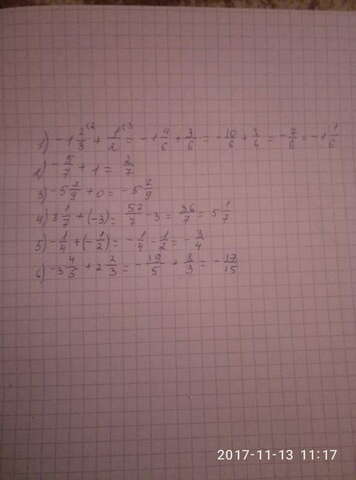 1) -1 2/3 + 1/2 = -1 4/6 + 3/6 = -10/6 + 3/6 = -7/6 = -1 1/6
2) -5/7 + 1 = 2/7
3) -5 2/9 + 0 = -5 2/9
4) 8 1/7 + (-3) = 57/7 - 3 = 36/7 = 5 1/7
5) -1/4 + (-1/2) = -1/4 - 1/2 = -3/4
6) -3 4/5 + 2 2/3 = -19/5 + 8/3 = -17/15
2017-11-13 11:17